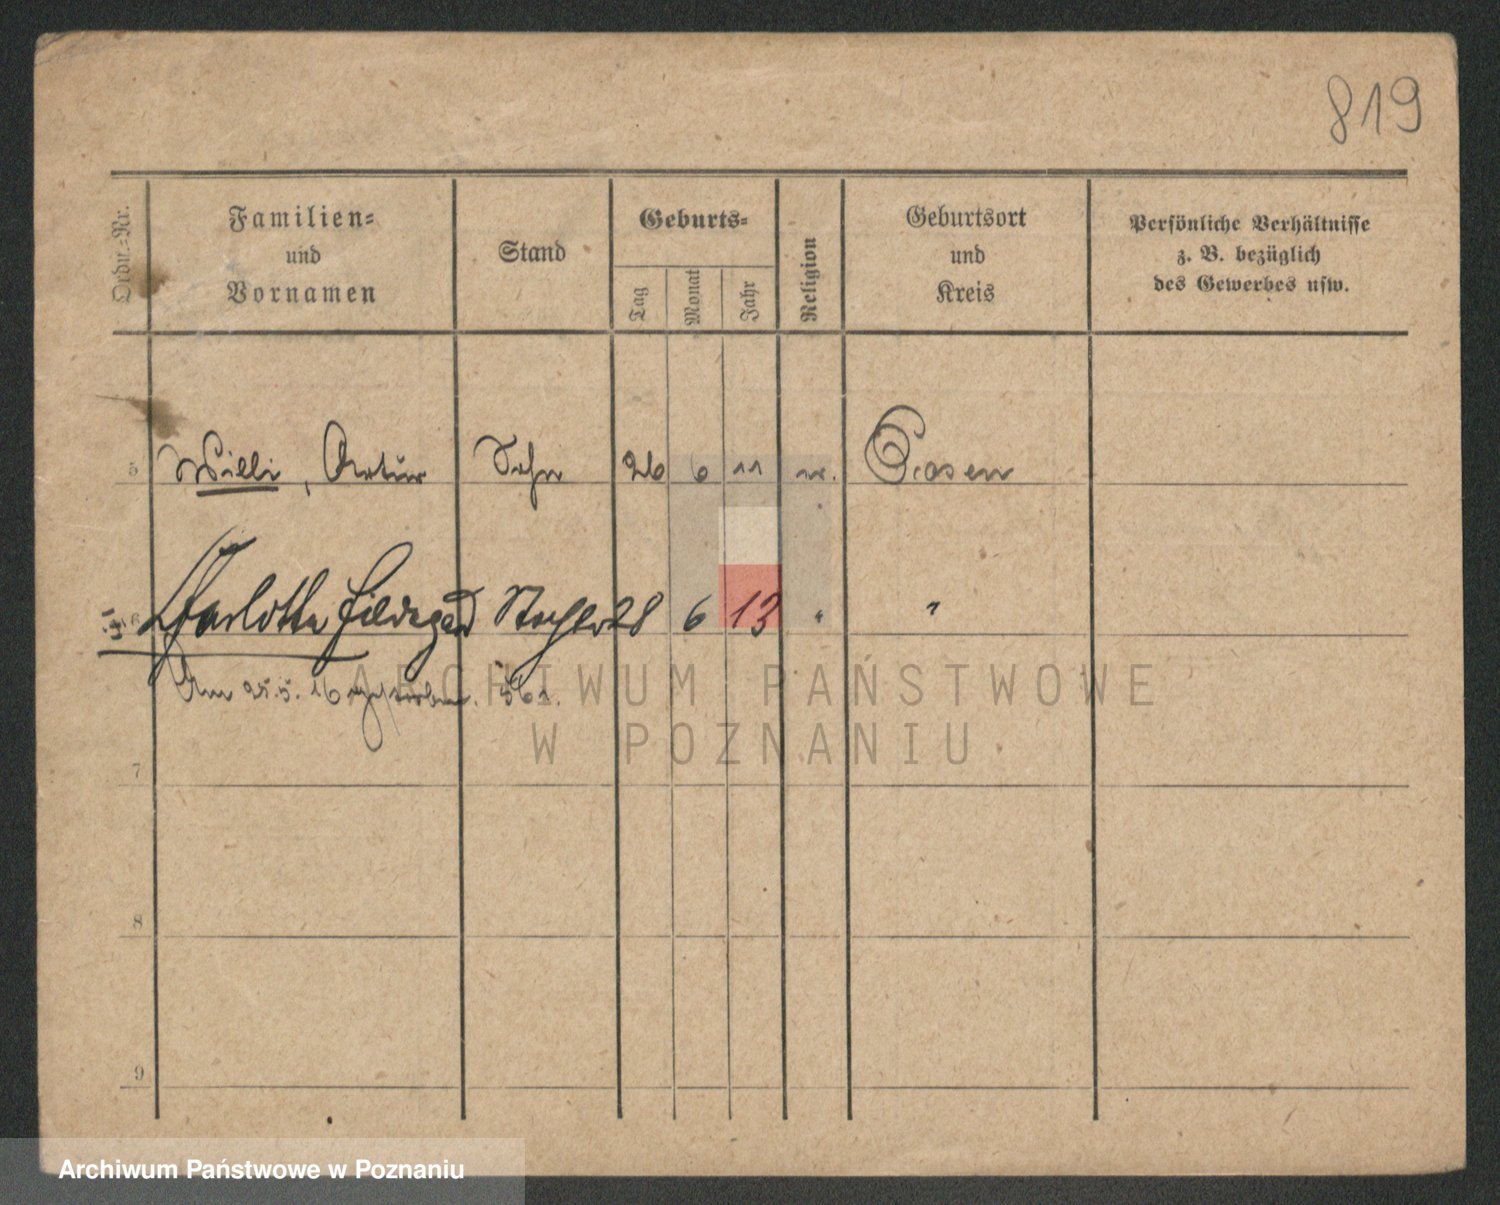 819
Ordn.-Nr.
Familien-
und
Vornamen
Stand
Geburts-
Tag
Monat
Jahr
Religion
Geburtsort
und
Kreis
Persönliche Verhältnisse
z. B. bezüglich
des Gewerbes usw.
5 Willi, Artur Sohn 26 6 11 ev. Posen
6 Charlotte Hildegard Tochter 28 6 13 " "
Am 25.5.16 gestorben. 561.
ARCHIWUM PAŃSTWOWE
W POZNANIU
7
8
9
Archiwum Państwowe w Poznaniu